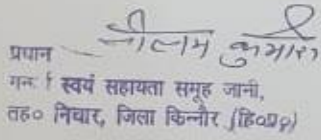 नीलम कुमारी
प्रधान
स्वयं सहायता समूह जानी,
तह० निचार, जिला किन्नौर (हि०प्र०)